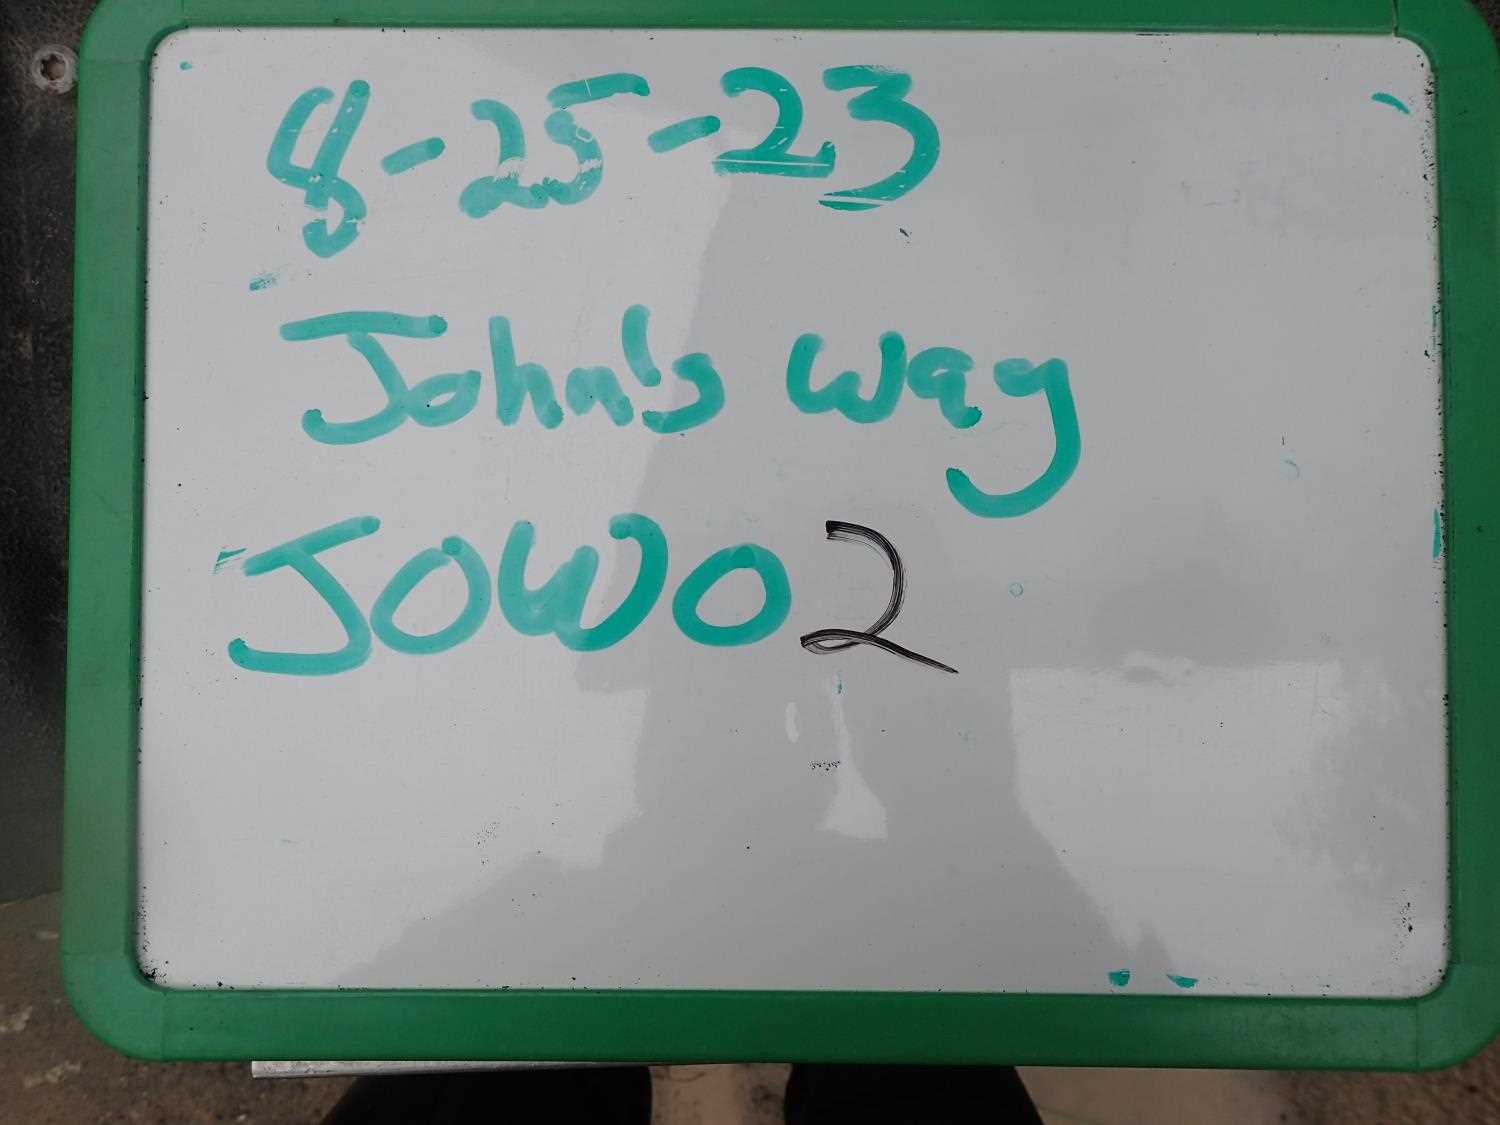 8-25-23
John's way
JOWO2